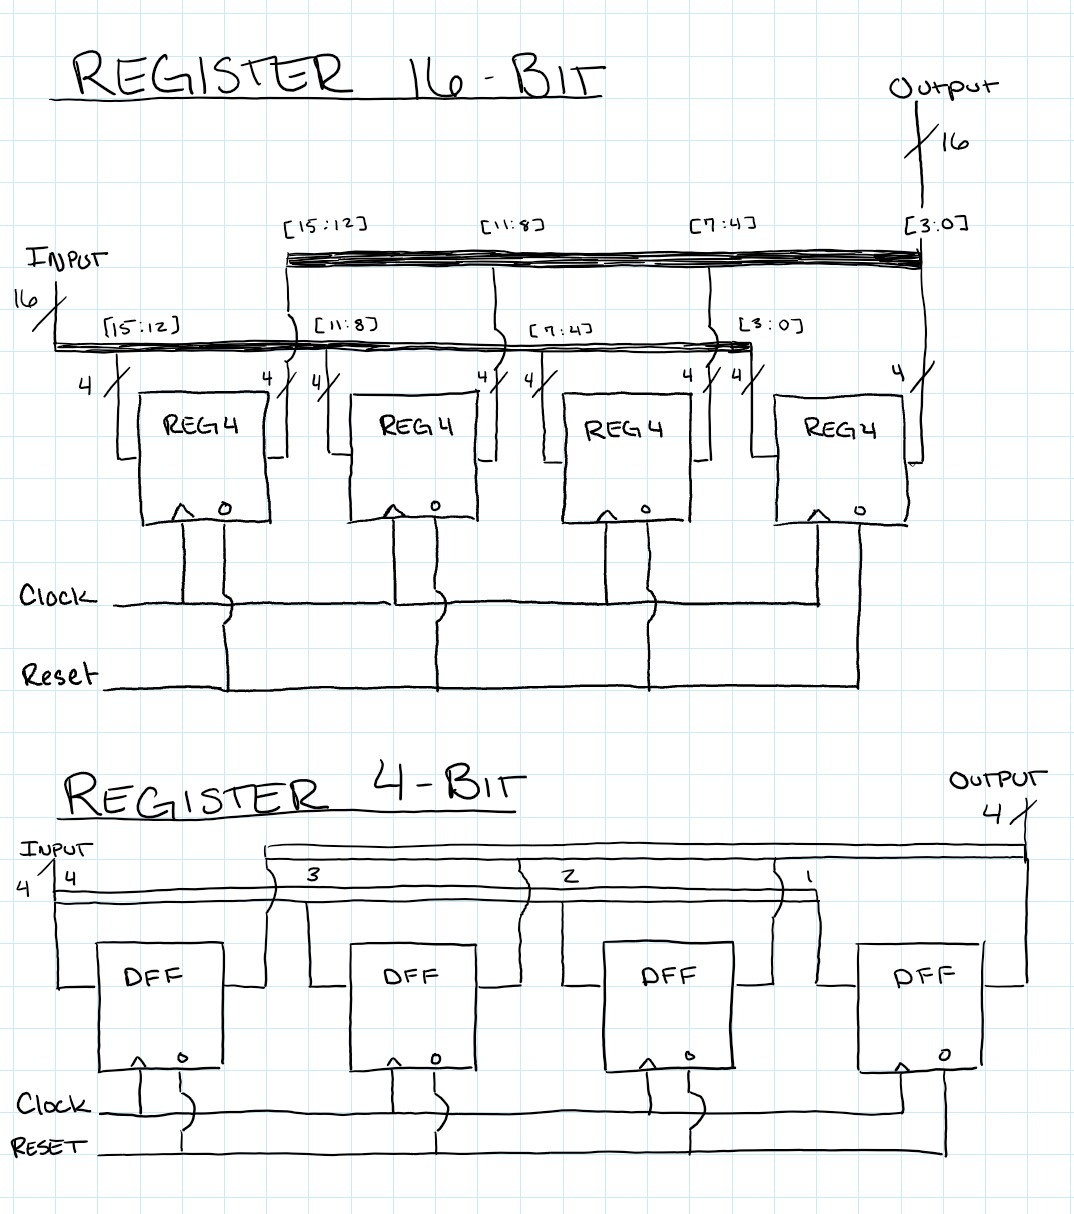 REGISTER 16-BIT
Output
16
[15:12] [11:8] [7:4] [3:0]
INPUT
16
[15:12] [11:8] [7:4] [3:0]
4 4 4 4 4 4 4 4
REG4 REG4 REG4 REG4
Clock
Reset
REGISTER 4-BIT
OUTPUT
4
INPUT
4 4 3 2 1
DFF DFF DFF DFF
Clock
RESET